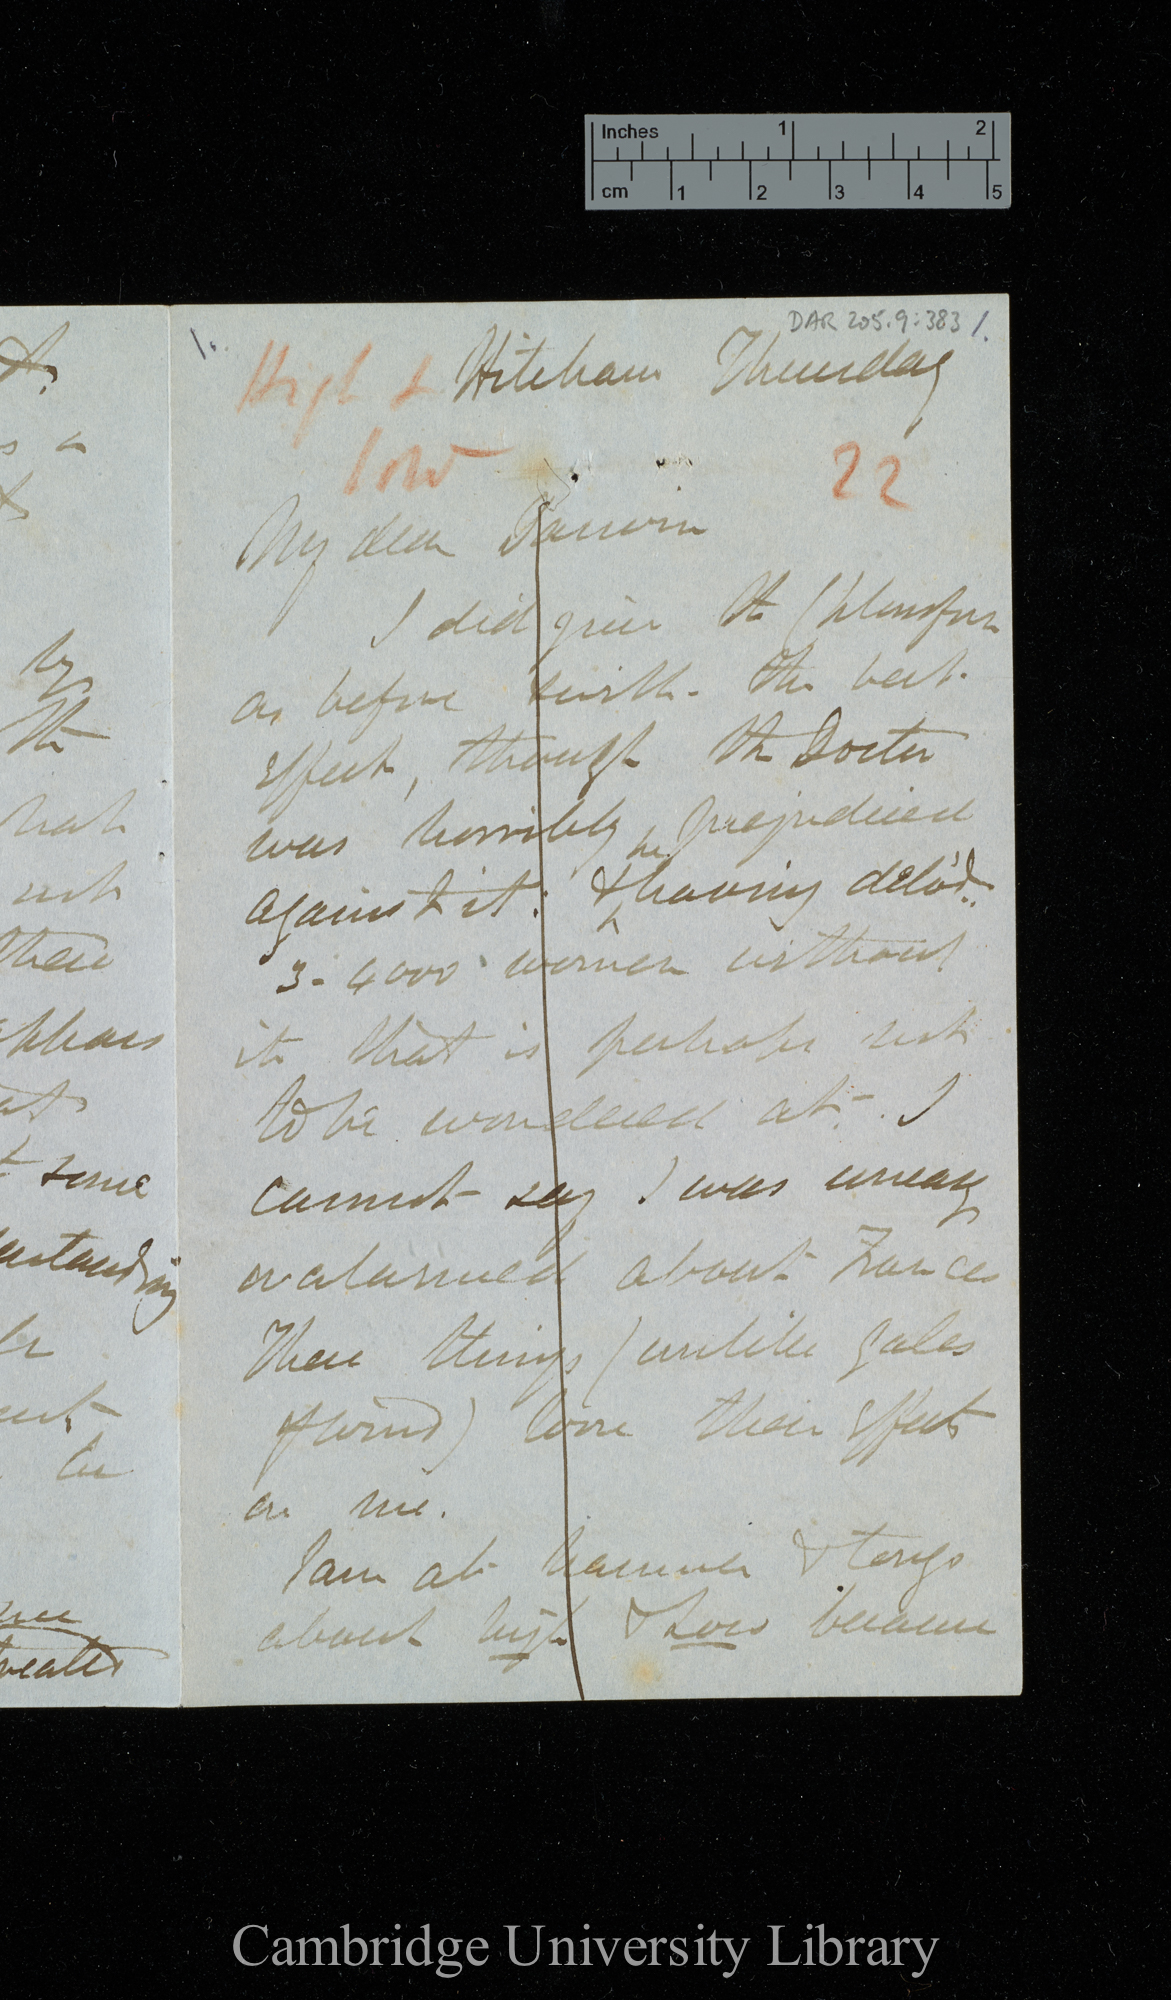 Inches 1 2
cm 1 2 3 4 5
DAR 205.9:383 1.
High & Hitcham Thursday
low
22
My dear Darwin
I did give the Chlorofm
as before with the best
effect, though the Doctor
was horribly prejudiced
against it: & he having deld..
3-4000 women without
it that is perhaps not
to be wondered at. I
cannot say I was uneasy
or alarmed about Frances
These things (unlike gales
of wind) lose their effects
on me.
I am at hammer & tongs
about high & low because
by
the
not
their
some
be
Cambridge University Library